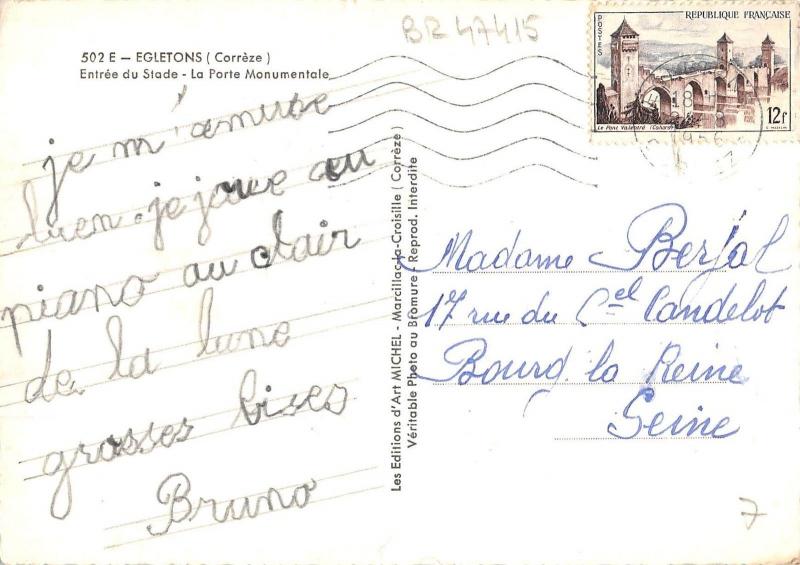 BR 47415
502 E — EGLETONS ( Corrèze )
Entrée du Stade - La Porte Monumentale
je m'amuse
bien. je joue au
piano au clair
de la lune
grosses bises
Bruno
Les Editions d'Art MICHEL - Marcillac-la-Croisille ( Corrèze )
Véritable Photo au Bromure - Reprod. Interdite
POSTES
REPUBLIQUE FRANÇAISE
Le Pont Valentré (Cahors)
12f
1956
Madame Berjal
17 rue du Cel Candelot
Bourg la Reine
Seine
7